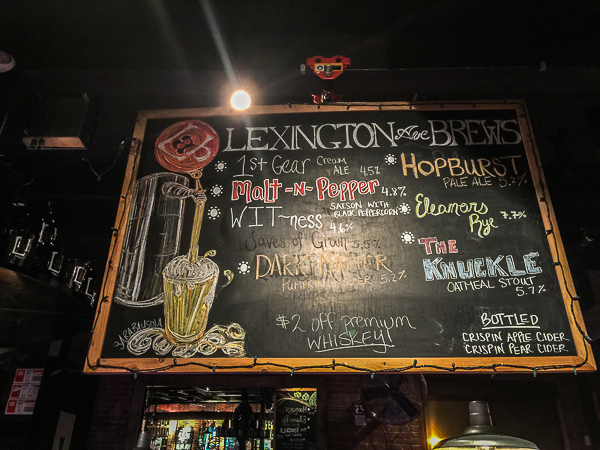 LEXINGTON Ave BREWS
1st Gear Cream
ALE 4.5%
Malt-n-Pepper 4.8%
SAISON WITH
BLACK PEPPERCORN
WIT~ness
4.6%
Saves of Grain 5.5%
DARK
PUMPKIN 5.2%
$2 off premium
WHISKEY!
HOPBURST
PALE ALE 5.2%
Eleanors
Rye 7.7%
THE
KNUCKLE
OATMEAL STOUT
5.7%
BOTTLED
CRISPIN APPLE CIDER
CRISPIN PEAR CIDER